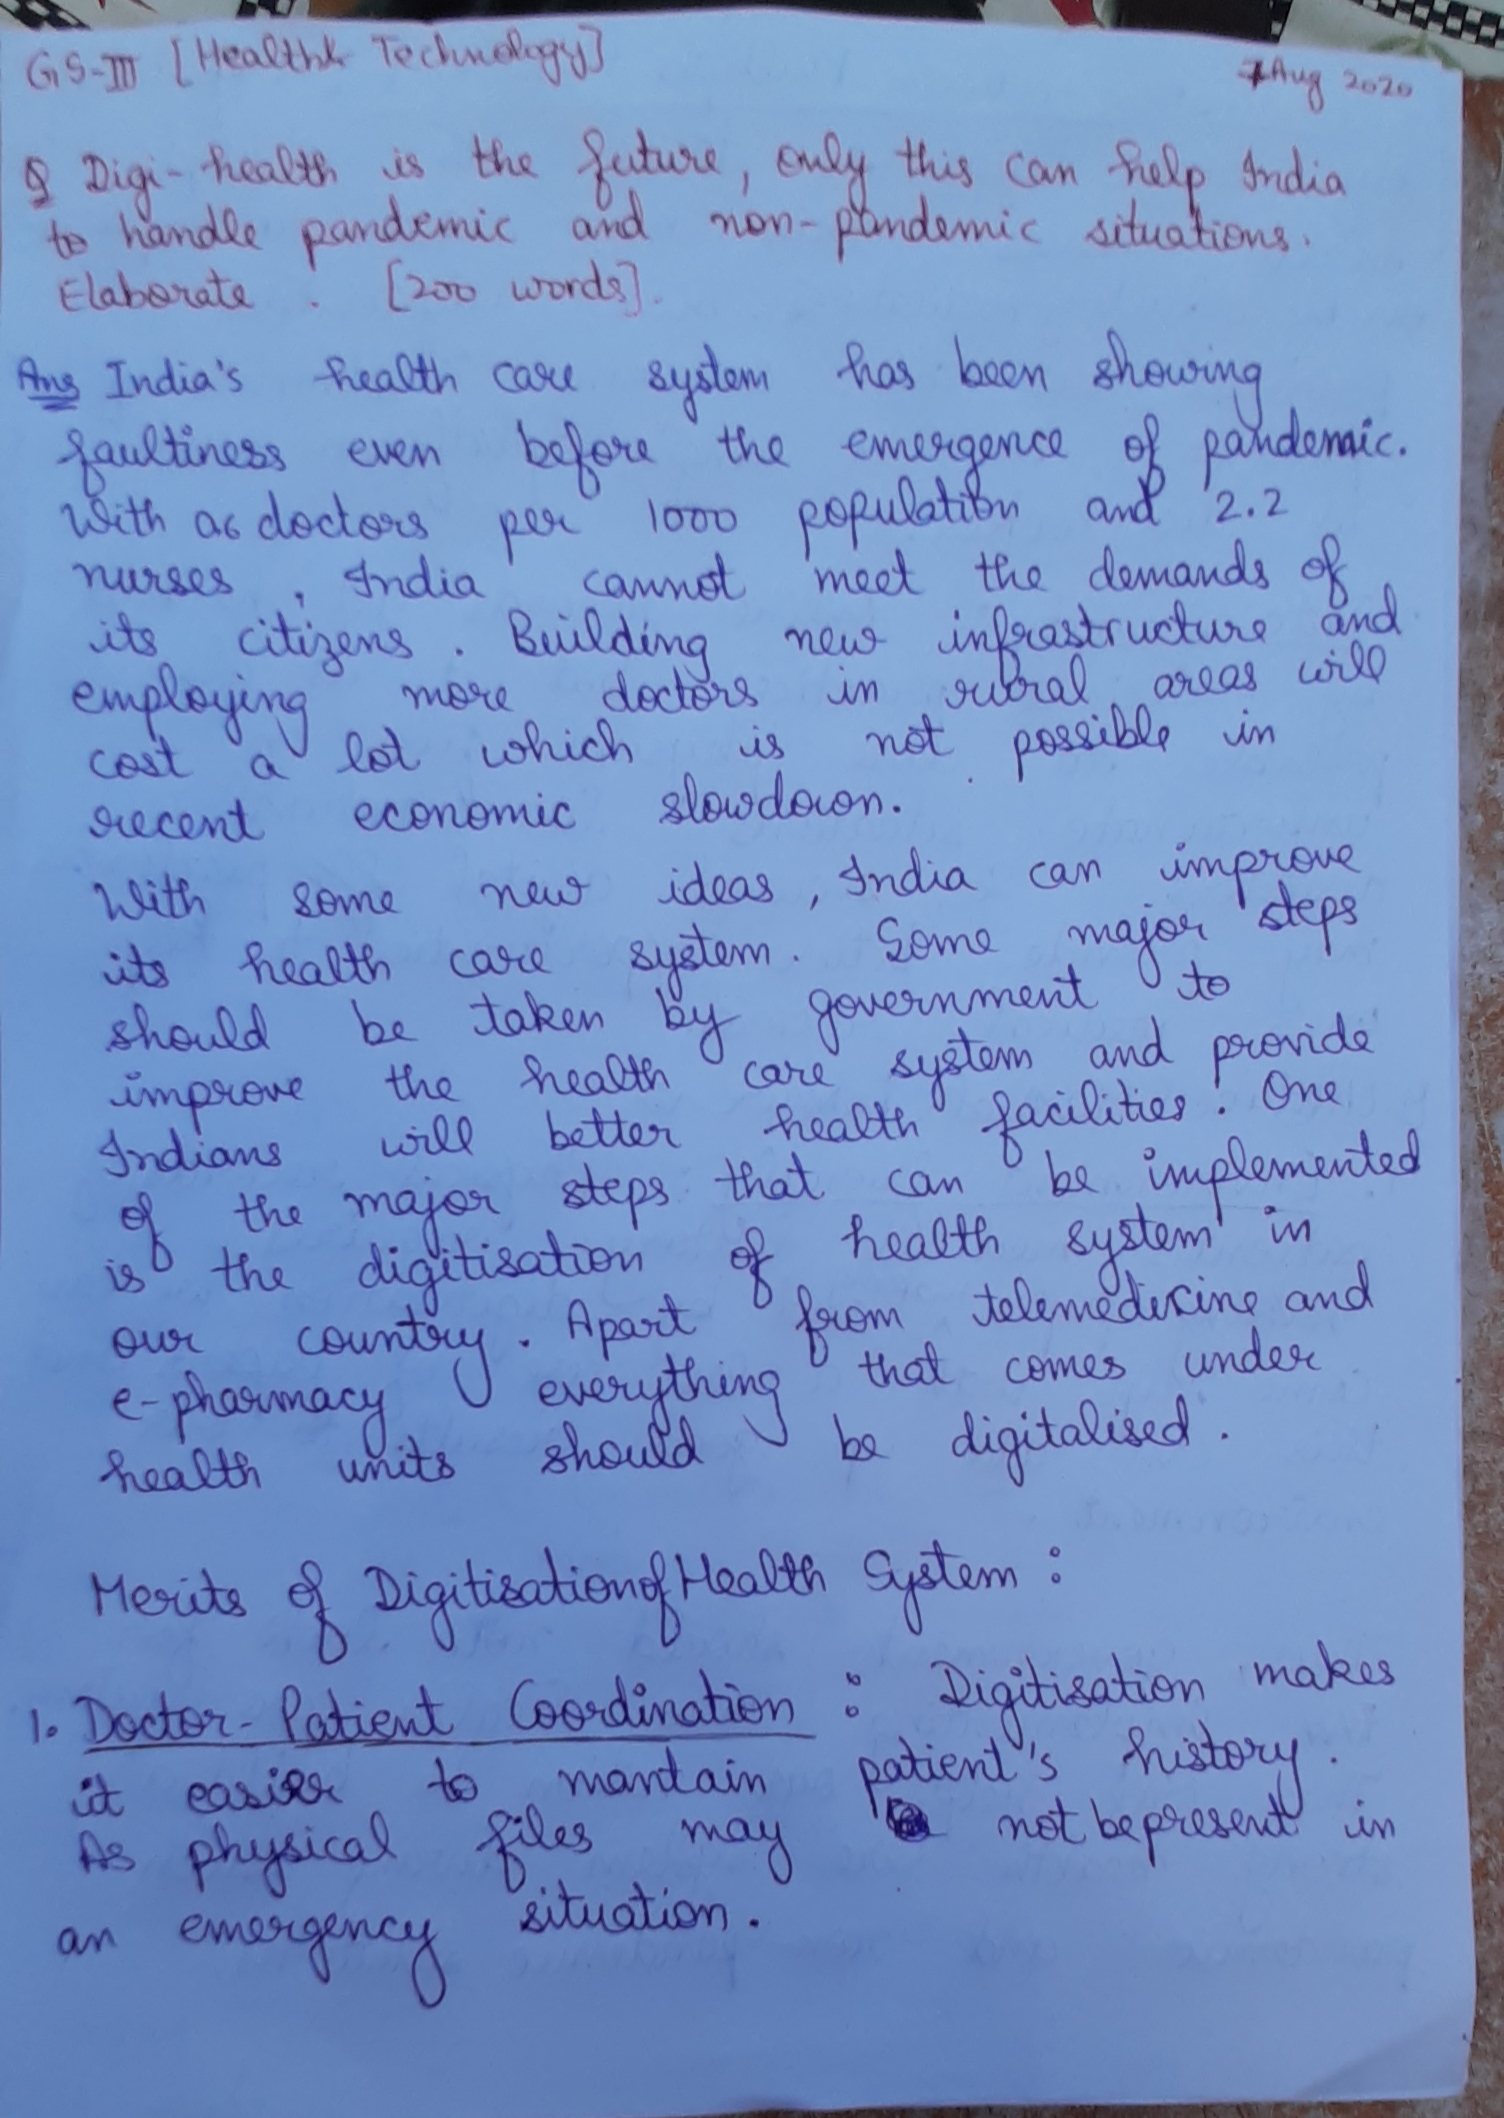 GS-III [Health & Technology]
7 Aug 2020
Q Digi-health is the future, only this can help India
to handle pandemic and non-pandemic situations.
Elaborate. [200 words].
Ans India's health care system has been showing
faultiness even before the emergence of pandemic.
With as doctors per 1000 population and 2.2
nurses, India cannot meet the demands of
its citizens. Building new infrastructure and
employing more doctors in rural areas will
cost a lot which is not possible in
recent economic slowdown.
With some new ideas, India can improve
its health care system. Some major steps
should be taken by government to
improve the health care system and provide
Indians will better health facilities. One
of the major steps that can be implemented
is the digitisation of health system in
our country. Apart from telemedicine and
e-pharmacy everything that comes under
health units should be digitalised.
Merits of Digitisation of Health System:
1. Doctor-Patient Coordination: Digitisation makes
it easier to mantain patient's history.
As physical files may not be present in
an emergency situation.